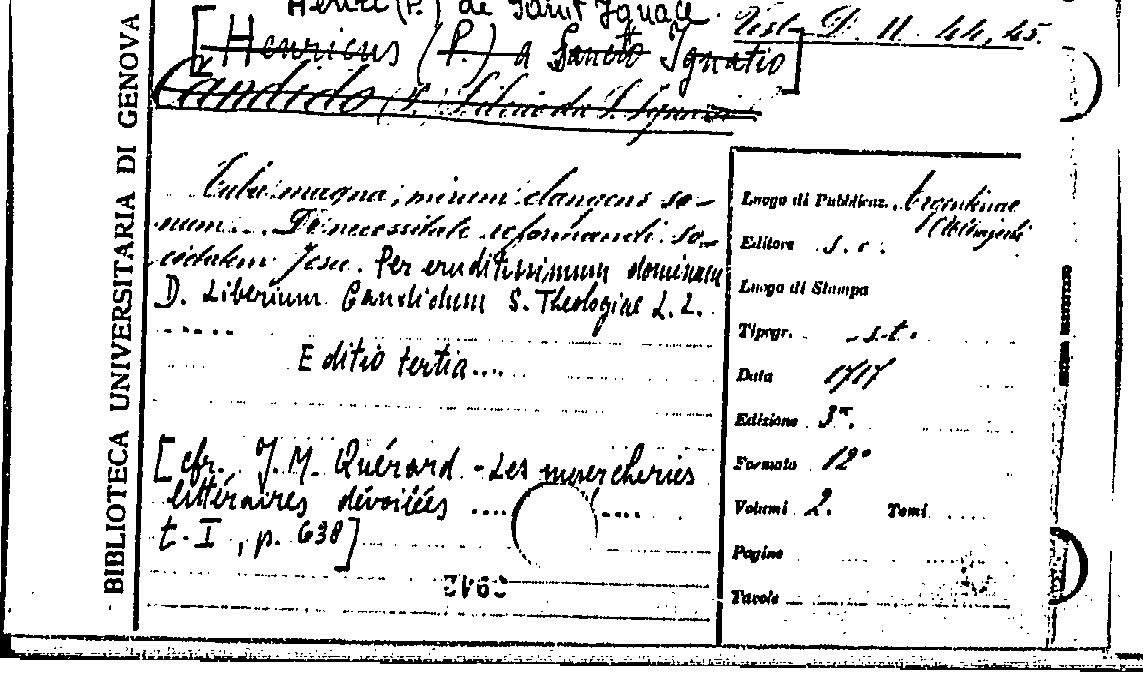 Henri (P.) de Saint Ignace.
Test. D. 11. 44, 45.
[Henricus (P.) a Sancto Ignatio]
Candido (P.
BIBLIOTECA UNIVERSITARIA DI GENOVA
Tuba magna, mirum clangens so-
num... De necessitate reformandi So-
cietatem Jesu. Per eruditissimum dominum
D. Liberium Candidum S. Theologiae L. L.
......
Editio tertia....
[cfr., J. M. Quérard - Les supercheries
littéraires dévoilées ........
t. I, p. 638]
Luogo di Pubblicaz. Argentinae
Editore s. e.
Luogo di Stampa
Tipogr. s. t.
Data 1717
Edizione 3ª.
Formato 12°
Volumi 2. Tomi
Pagine
Tavole